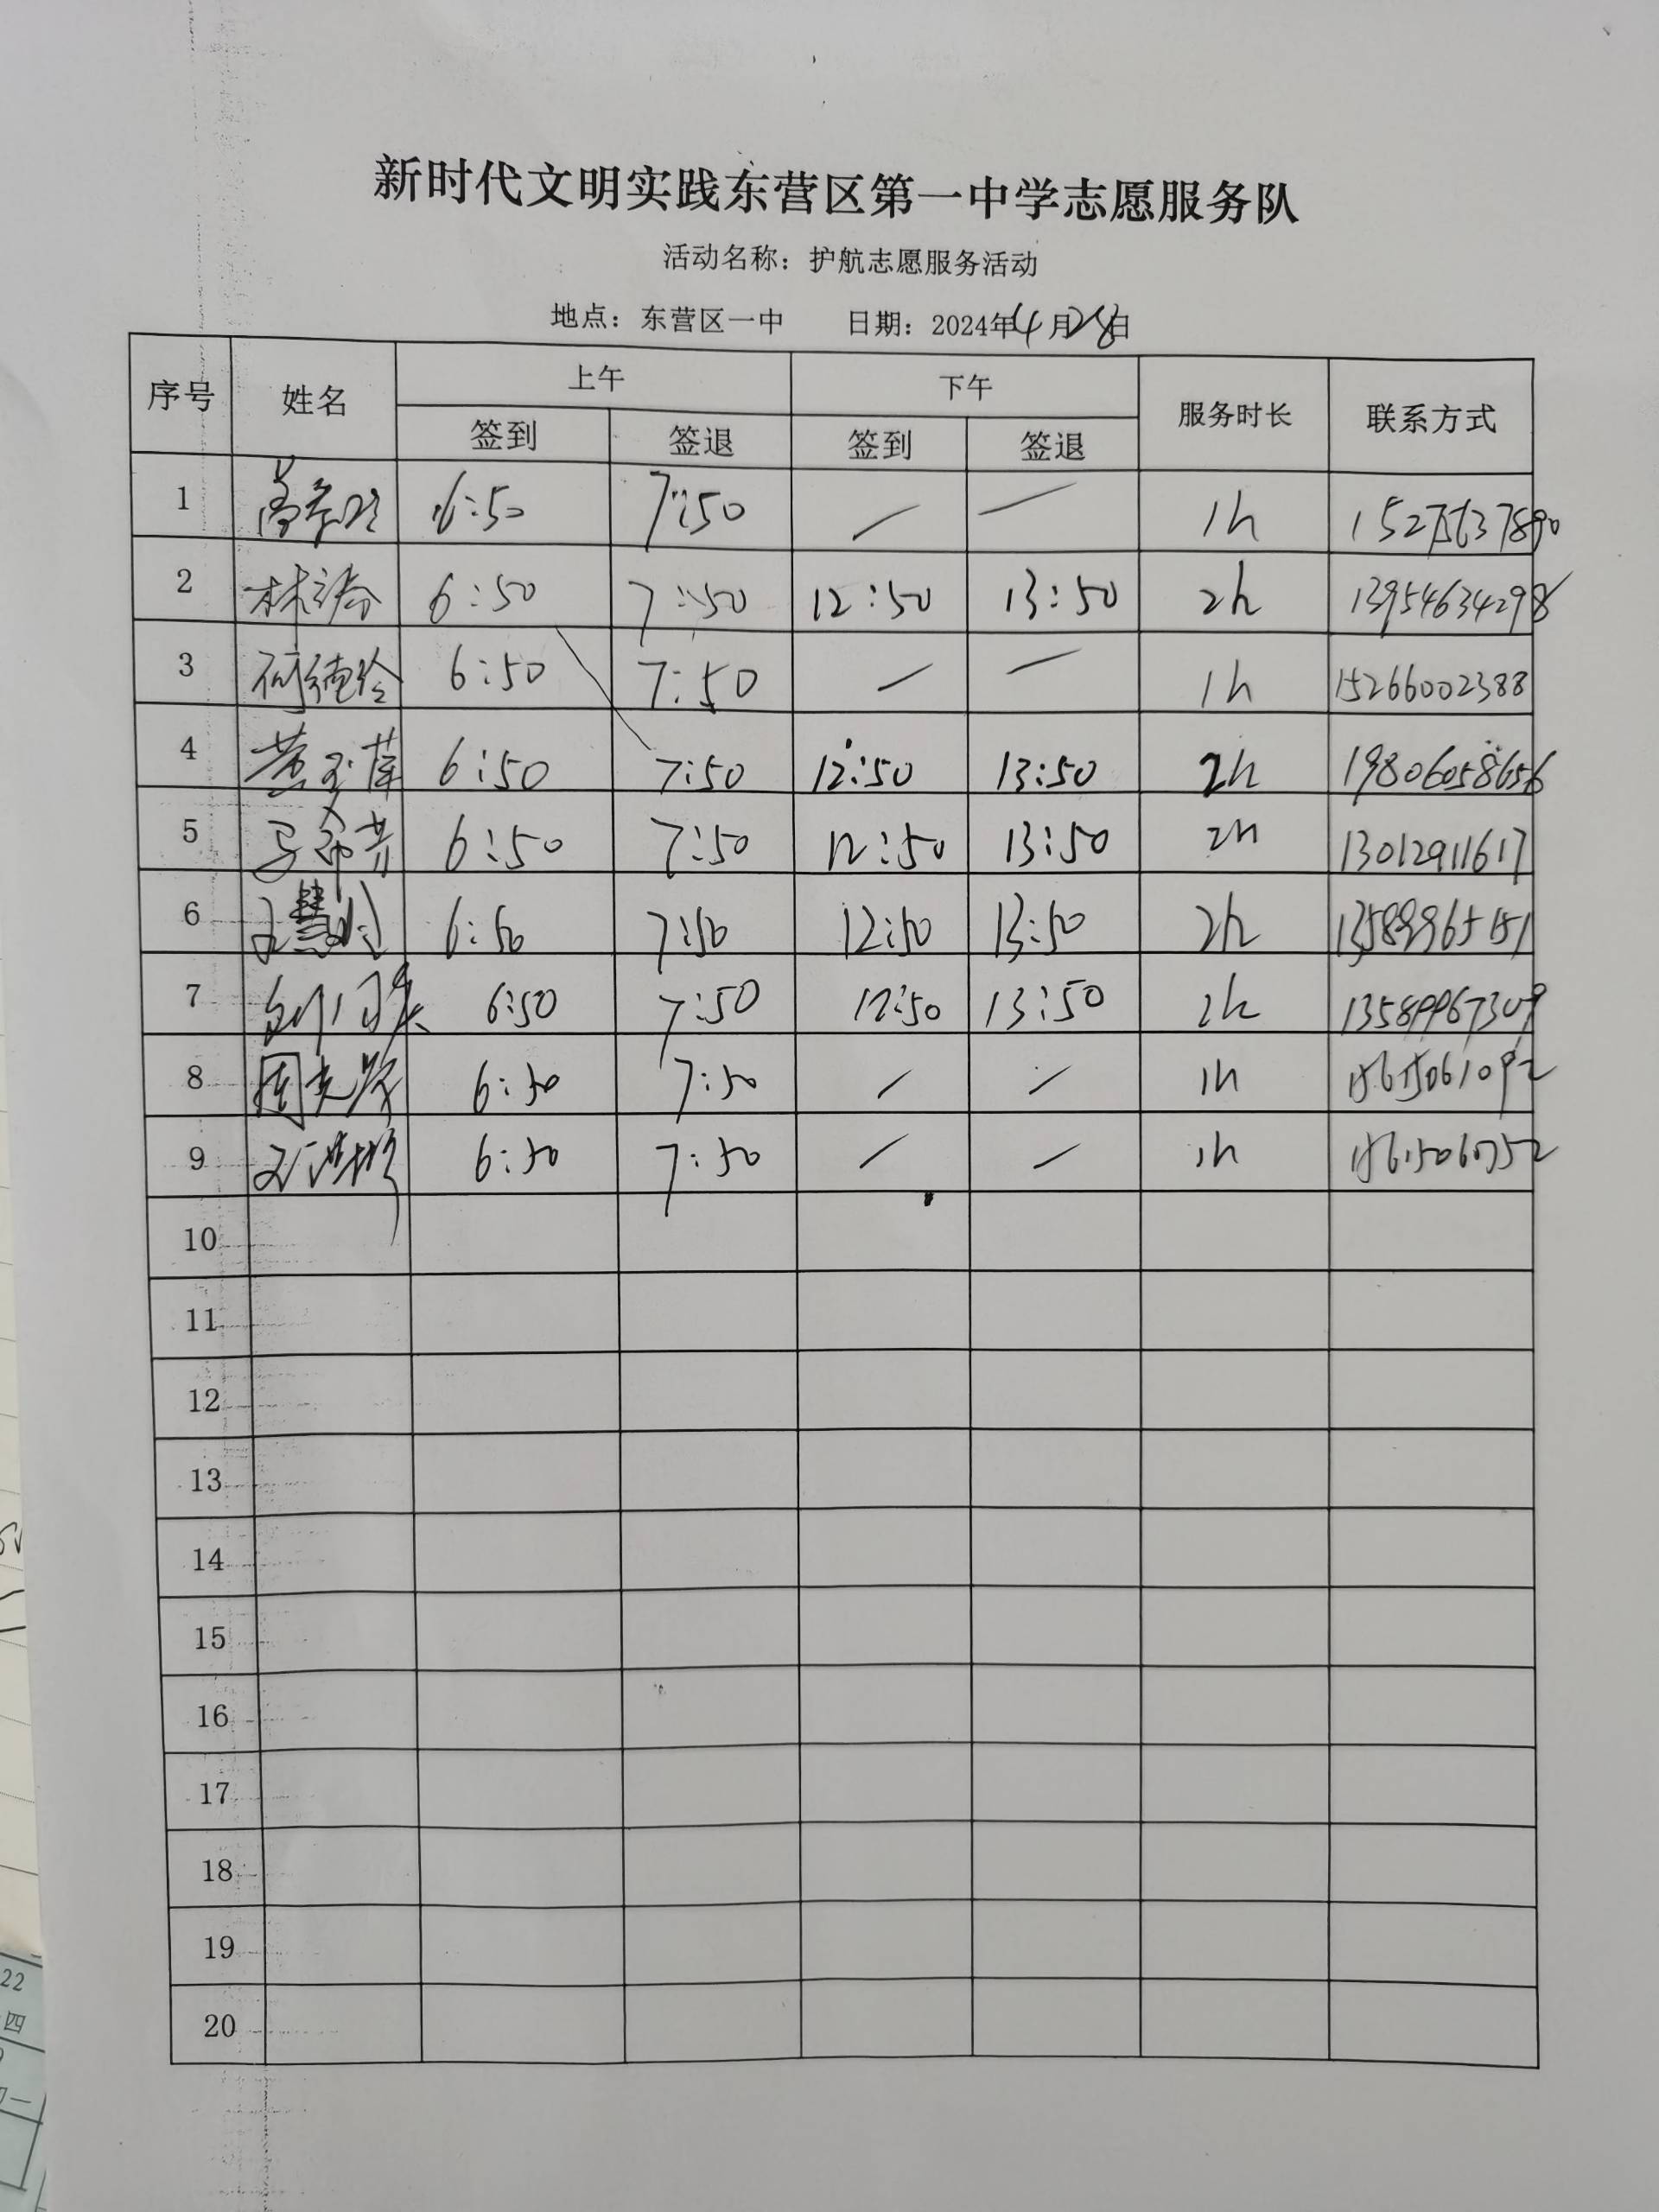 新时代文明实践东营区第一中学志愿服务队
活动名称：护航志愿服务活动
地点：东营区一中 日期：2024年4月28日
序号 姓名 上午 下午 服务时长 联系方式
签到 签退 签到 签退
1 6:50 7:50 / — 1h
2 6:50 7:50 12:50 13:50 2h 13954634298
3 6:50 7:50 — — 1h 15266002388
4 6:50 7:50 12:50 13:50 2h 19806058656
5 6:50 7:50 12:50 13:50 2h 13012911617
6 6:50 7:50 12:50 13:50 2h 13589965151
7 6:50 7:50 12:50 13:50 2h 13589967309
8 6:50 7:50 / / 1h
9 6:50 7:50 / / 1h
10
11
12
13
14
15
16
17
18
19
20
22
四